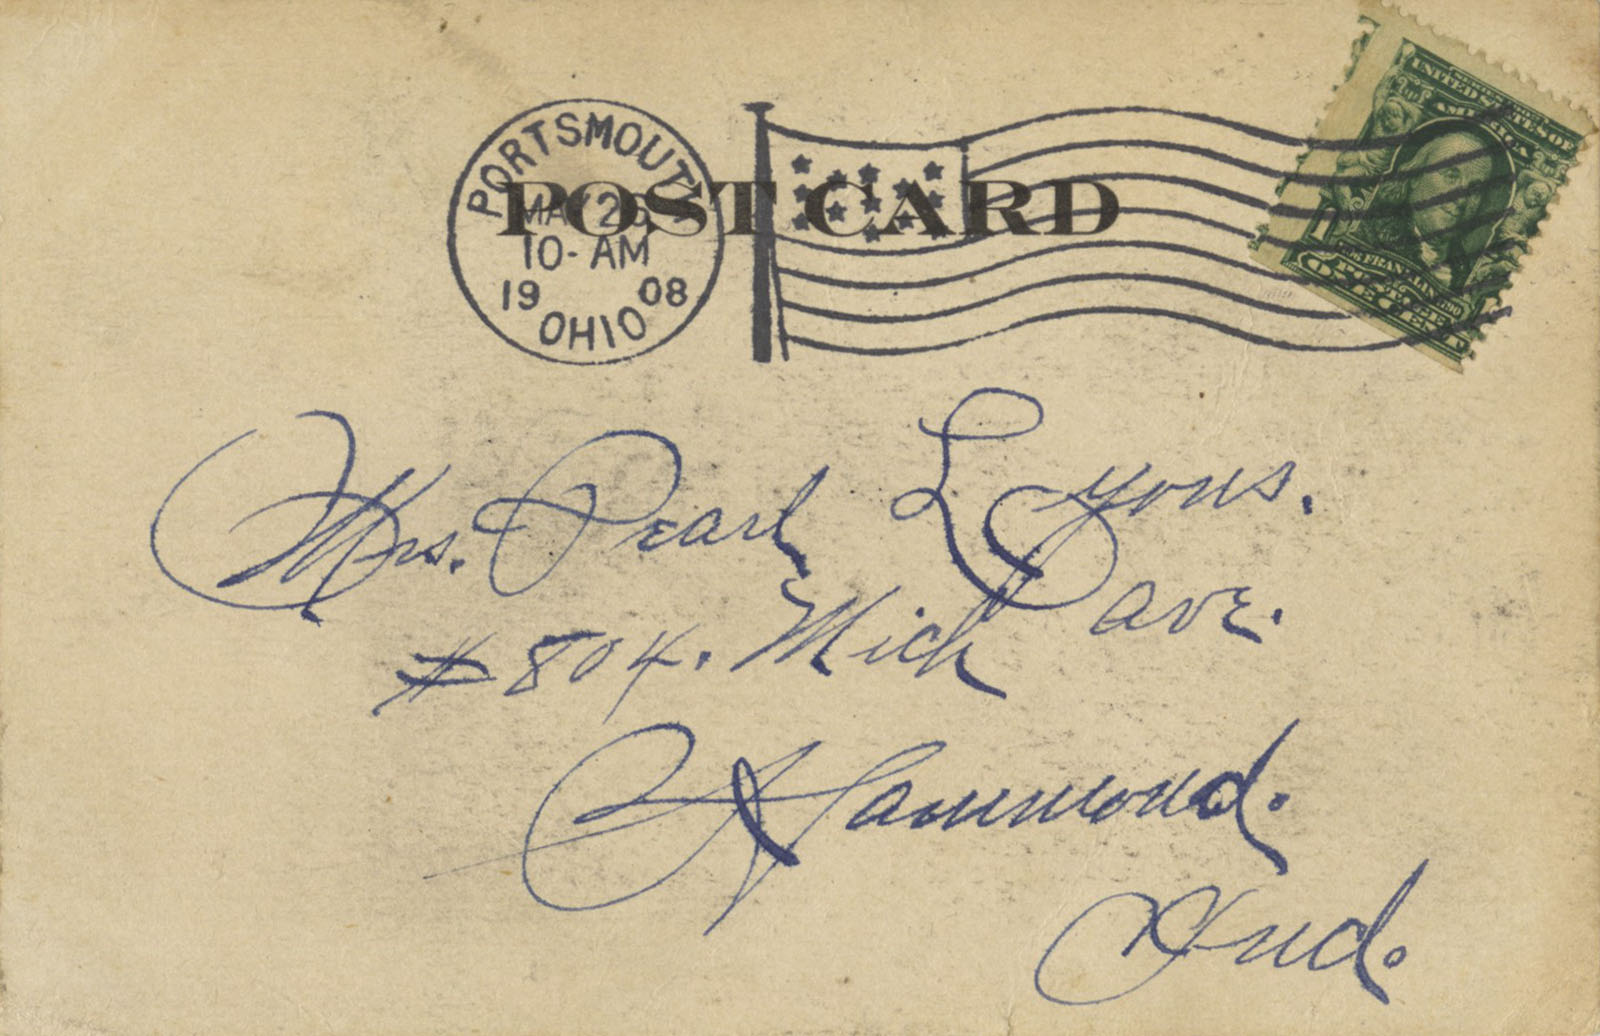 PORTSMOUTH
MAY 26
10-AM
19 08
OHIO
POST CARD
UNITED STATES OF
AMERICA
FRANKLIN
ONE CENT
Mrs. Pearl Lyons.
#804. Mich ave.
Hammond.
Ind.